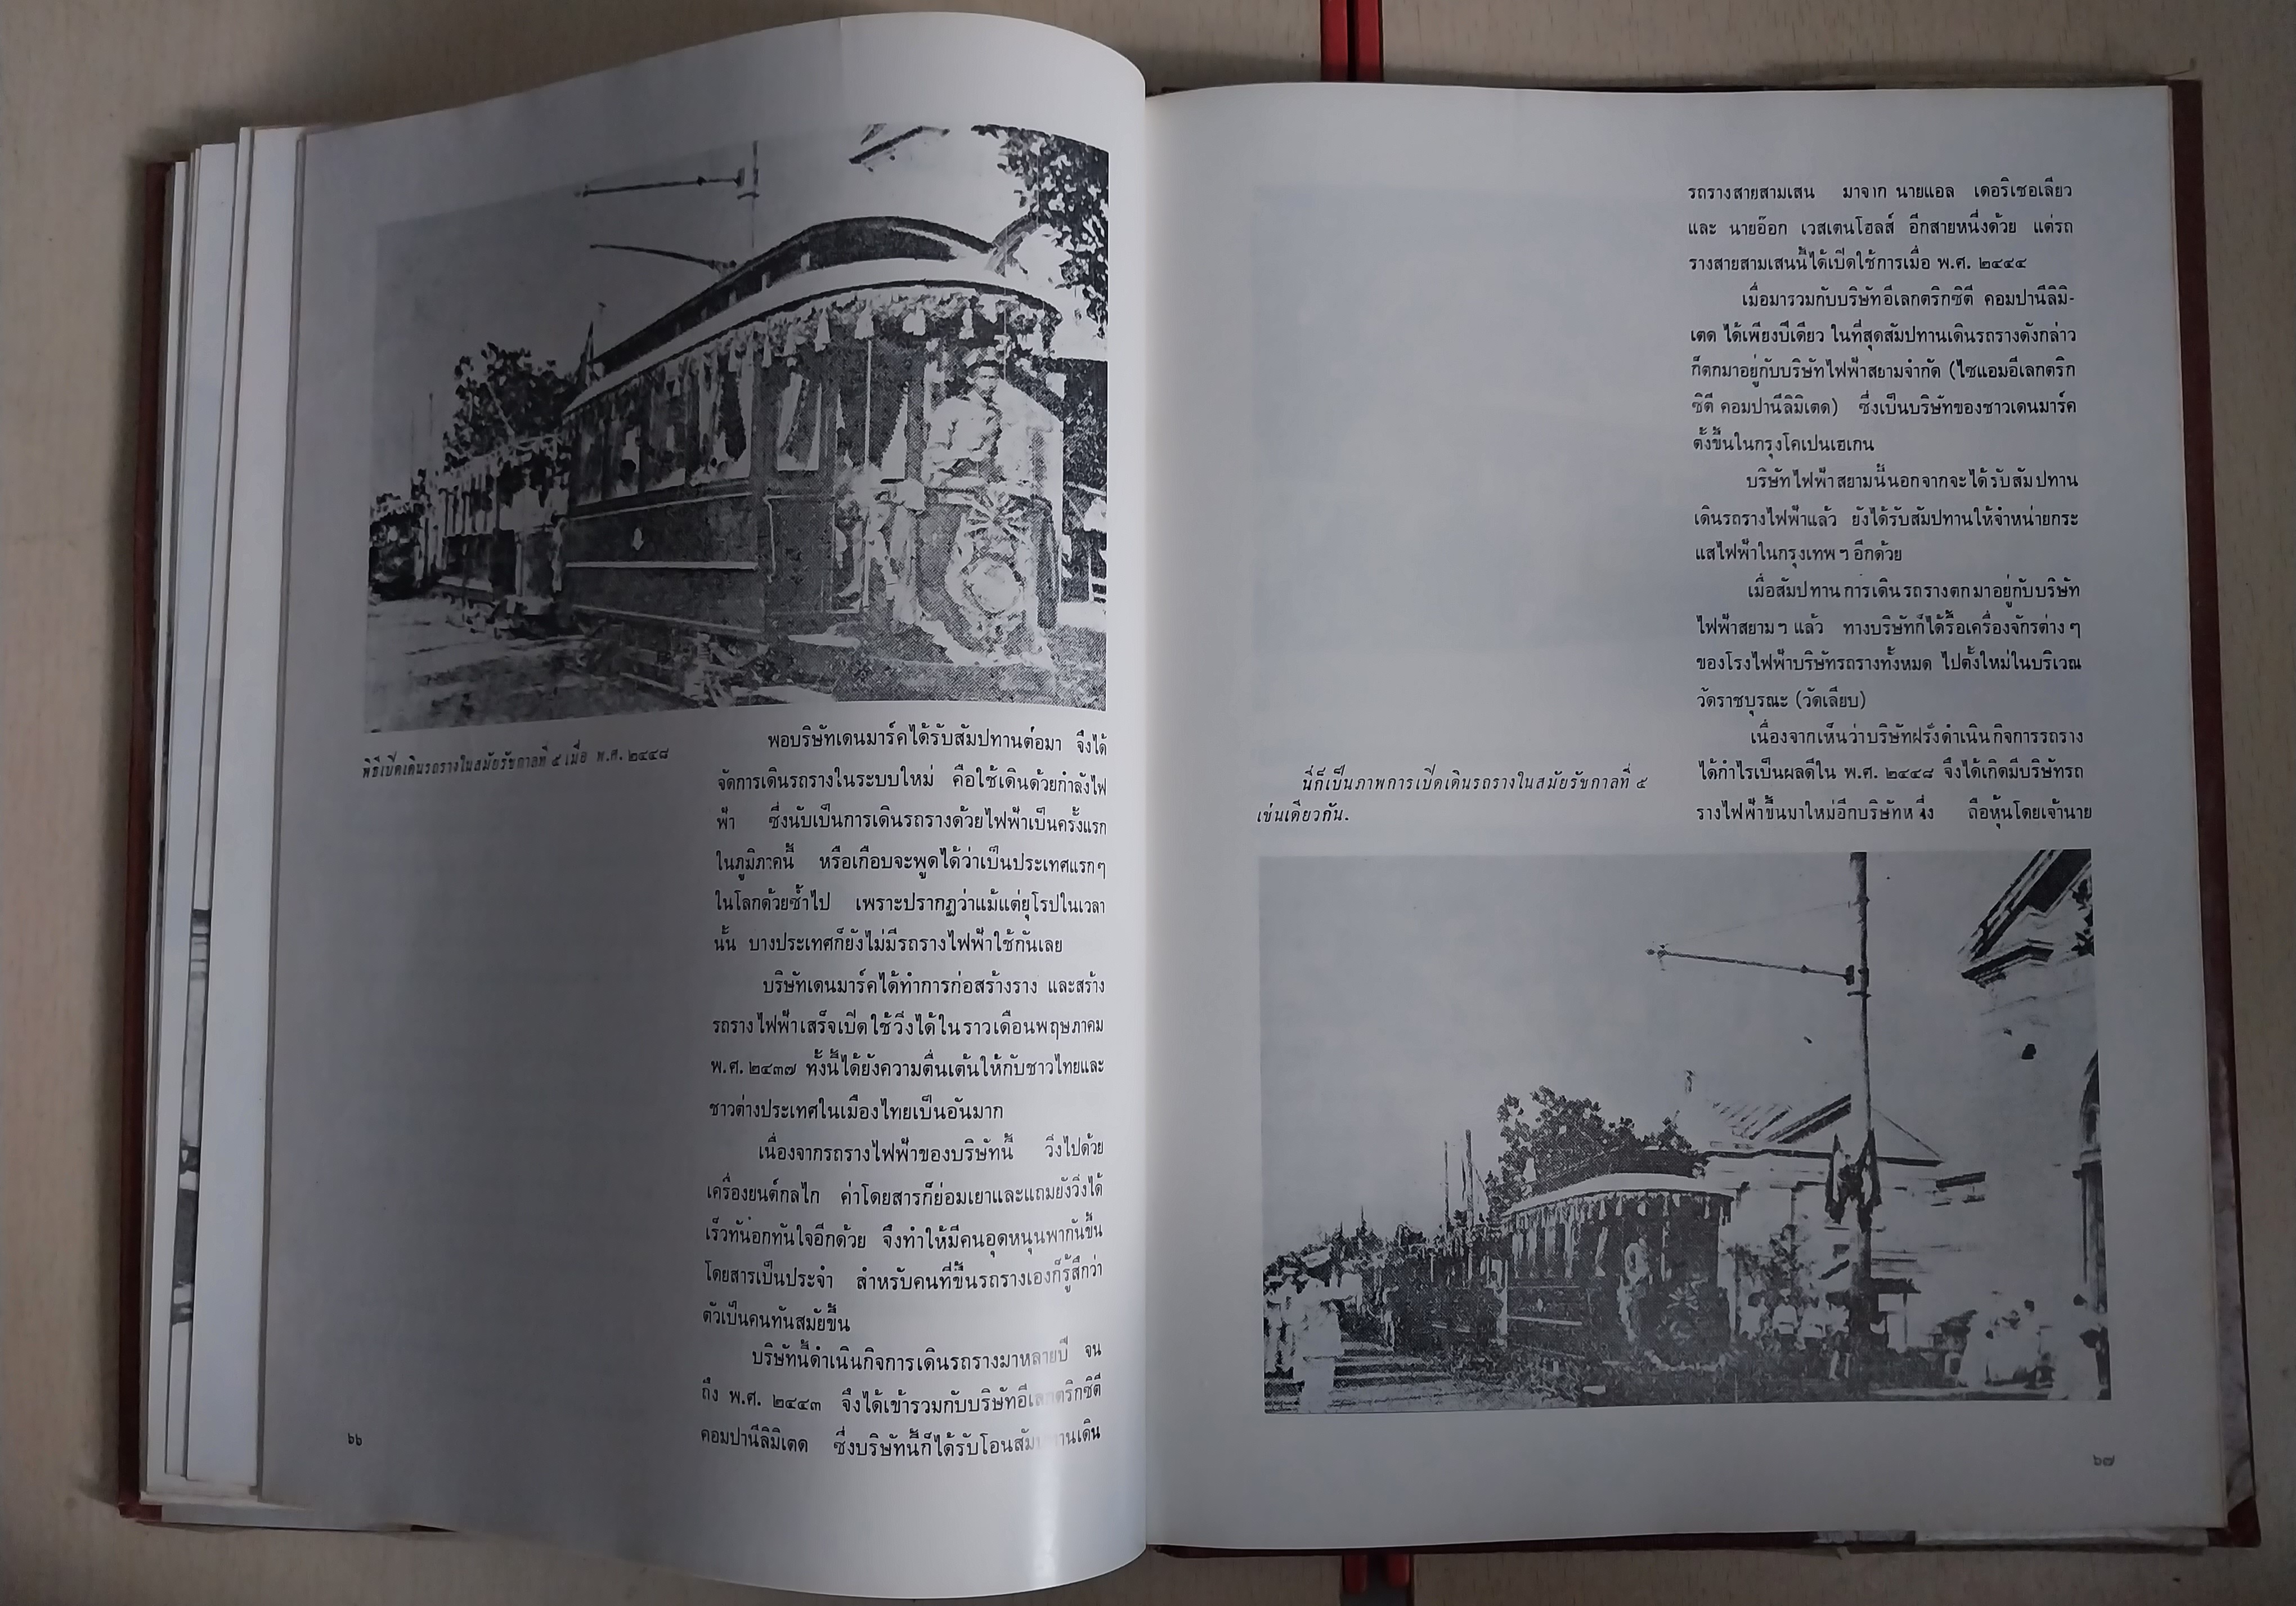 พิธีเปิดเดินรถรางในสมัยรัชกาลที่ ๕ เมื่อ พ.ศ. ๒๔๔๘
พอบริษัทเดนมาร์คได้รับสัมปทานต่อมา จึงได้
จัดการเดินรถรางในระบบใหม่ คือใช้เดินด้วยกำลังไฟ
ฟ้า ซึ่งนับเป็นการเดินรถรางด้วยไฟฟ้าเป็นครั้งแรก
ในภูมิภาคนี้ หรือเกือบจะพูดได้ว่าเป็นประเทศแรกๆ
ในโลกด้วยซ้ำไป เพราะปรากฏว่าแม้แต่ยุโรปในเวลา
นั้น บางประเทศก็ยังไม่มีรถรางไฟฟ้าใช้กันเลย
บริษัทเดนมาร์คได้ทำการก่อสร้างราง และสร้าง
รถรางไฟฟ้าเสร็จเปิดใช้วิ่งได้ในราวเดือนพฤษภาคม
พ.ศ. ๒๔๓๗ ทั้งนี้ได้ยังความตื่นเต้นให้กับชาวไทยและ
ชาวต่างประเทศในเมืองไทยเป็นอันมาก
เนื่องจากรถรางไฟฟ้าของบริษัทนี้ วิ่งไปด้วย
เครื่องยนต์กลไก ค่าโดยสารก็ย่อมเยาและแถมยังวิ่งได้
เร็วทันอกทันใจอีกด้วย จึงทำให้มีคนอุดหนุนพากันขึ้น
โดยสารเป็นประจำ สำหรับคนที่ขึ้นรถรางเองก็รู้สึกว่า
ตัวเป็นคนทันสมัยขึ้น
บริษัทนี้ดำเนินกิจการเดินรถรางมาหลายปี จน
ถึง พ.ศ. ๒๔๔๓ จึงได้เข้ารวมกับบริษัทอีเลกตริกซิตี
คอมปานีลิมิเตด ซึ่งบริษัทนี้ก็ได้รับโอนสัมปทานเดิน
๖๖
รถรางสายสามเสน มาจาก นายแอล เดอริเชอเลียว
และ นายอ๊อก เวสเตนโฮลส์ อีกสายหนึ่งด้วย แต่รถ
รางสายสามเสนนี้ได้เปิดใช้การเมื่อ พ.ศ. ๒๔๔๔
เมื่อมารวมกับบริษัทอีเลกตริกซิตี คอมปานีลิมิ-
เตด ได้เพียงปีเดียว ในที่สุดสัมปทานเดินรถรางดังกล่าว
ก็ตกมาอยู่กับบริษัทไฟฟ้าสยามจำกัด (ไซแอมอีเลกตริก
ซิตี คอมปานีลิมิเตด) ซึ่งเป็นบริษัทของชาวเดนมาร์ค
ตั้งขึ้นในกรุงโคเปนเฮเกน
บริษัทไฟฟ้าสยามนี้นอกจากจะได้รับสัมปทาน
เดินรถรางไฟฟ้าแล้ว ยังได้รับสัมปทานให้จำหน่ายกระ
แสไฟฟ้าในกรุงเทพ ๆ อีกด้วย
เมื่อสัมปทานการเดินรถรางตกมาอยู่กับบริษัท
ไฟฟ้าสยาม ๆ แล้ว ทางบริษัทก็ได้รื้อเครื่องจักรต่าง ๆ
ของโรงไฟฟ้าบริษัทรถรางทั้งหมด ไปตั้งใหม่ในบริเวณ
วัดราชบุรณะ (วัดเลียบ)
เนื่องจากเห็นว่าบริษัทฝรั่งดำเนินกิจการรถราง
ได้กำไรเป็นผลดีใน พ.ศ. ๒๔๔๘ จึงได้เกิดมีบริษัทรถ
รางไฟฟ้าขึ้นมาใหม่อีกบริษัทหนึ่ง ถือหุ้นโดยเจ้านาย
นี่ก็เป็นภาพการเปิดเดินรถรางในสมัยรัชกาลที่ ๕
เช่นเดียวกัน.
๖๗